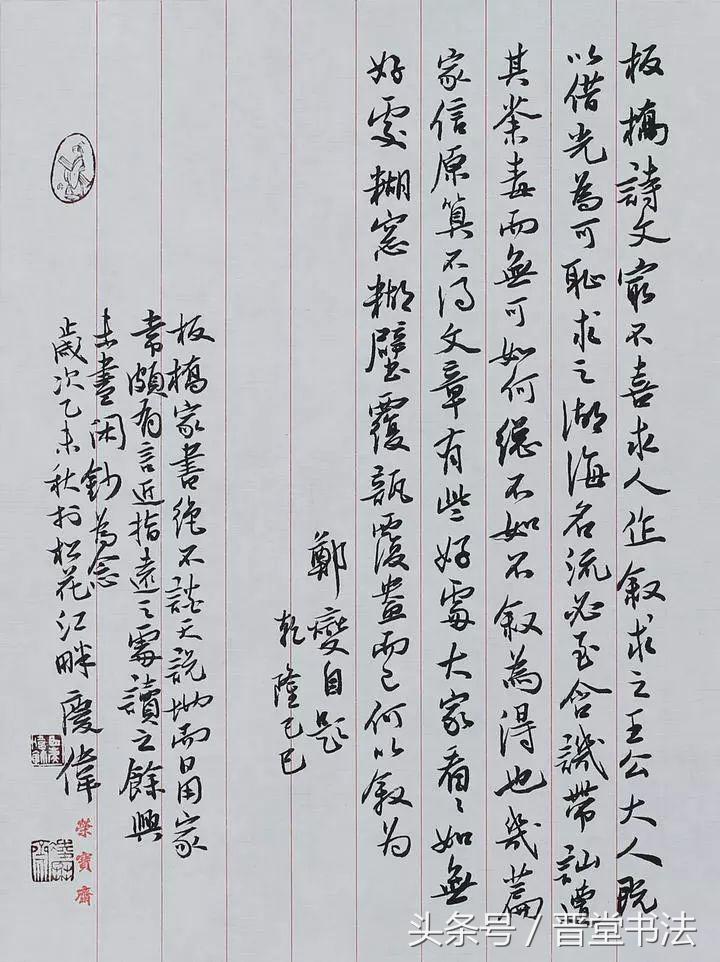 板橋詩文㝡不喜求人作叙求之王公大人既
以借光為可恥求之湖海名流必至含譏帶訕遭
其荼毒而無可如何總不如不叙為得也幾篇
家信原算不得文章有些好處大家看〻如無
好處糊窓糊壁覆瓿覆盎而已何以叙為
鄭燮自題
乾隆己巳
板橋家書絶不談天説地而日用家
常頗有言近指遠之處讀之餘興
未盡閑鈔為念
歲次乙未秋於松花江畔慶偉
榮寶齋
头条号 / 晋堂书法